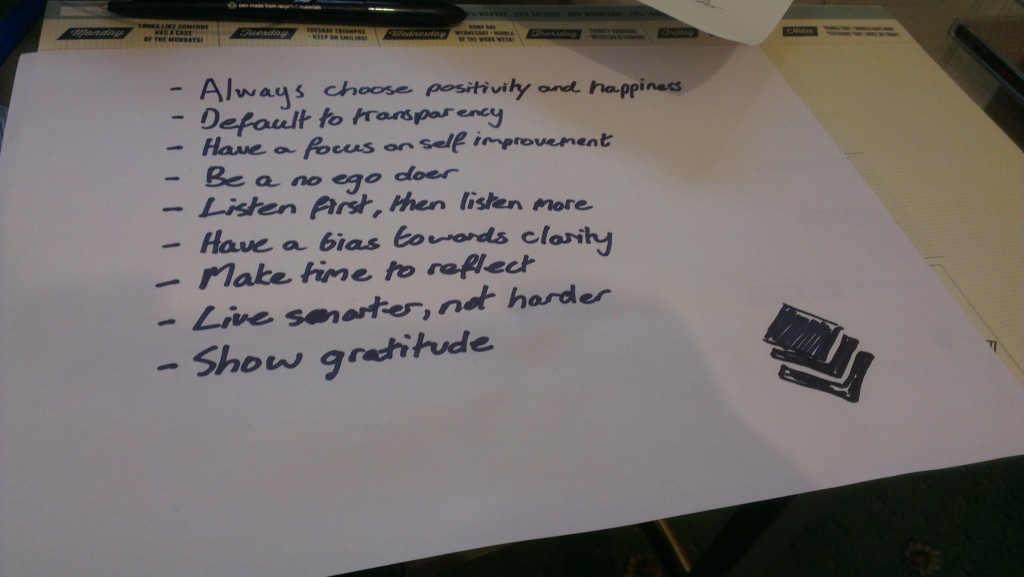 pen made from recycled materials
Monday
LOOKS LIKE SOMEONE
HAS A CASE
OF THE MONDAYS!
Tuesday
TUESDAY TRIUMPHS
- KEEP ON SMILING!
Wednesday
HUMP DAY
WEDNESDAY - MIDDLE
OF THE WORK WEEK!
Thursday
Friday
Notes
- Always choose positivity and happiness
- Default to transparency
- Have a focus on self improvement
- Be a no ego doer
- Listen first, then listen more
- Have a bias towards clarity
- Make time to reflect
- Live smarter, not harder
- Show gratitude